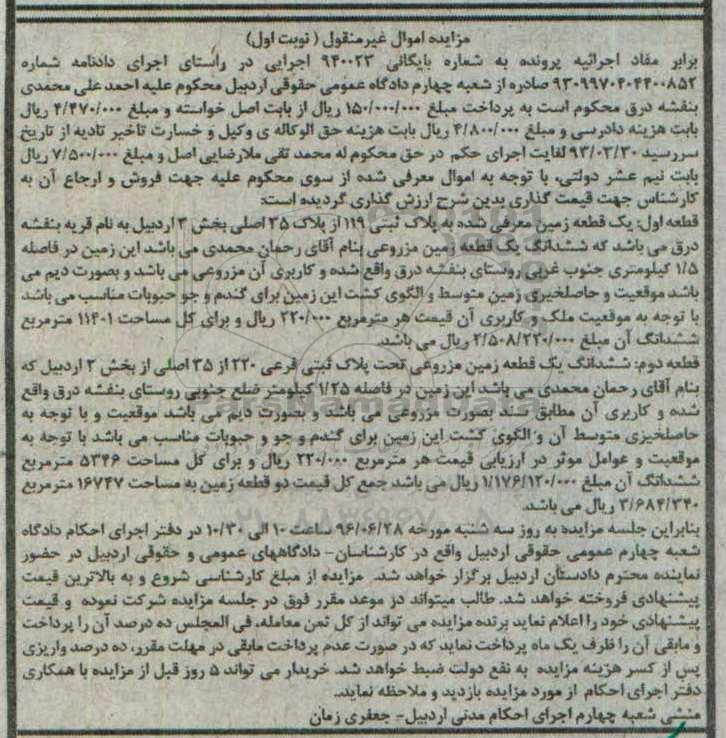 مزایده اموال غیرمنقول ( نوبت اول)
برابر مفاد اجرائیه پرونده به شماره بایگانی ۹۴۰۰۲۳ اجرایی در راستای اجرای دادنامه شماره
۹۳۰۹۹۷۰۴۰۴۴۰۰۸۵۲ صادره از شعبه چهارم دادگاه عمومی حقوقی اردبیل محکوم علیه احمد علی محمدی
بنفشه درق محکوم است به پرداخت مبلغ ۱۵۰/۰۰۰/۰۰۰ ریال از بابت اصل خواسته و مبلغ ۴/۴۷۰/۰۰۰ ریال
بابت هزینه دادرسی و مبلغ ۴/۸۰۰/۰۰۰ ریال بابت هزینه حق الوکاله ی وکیل و خسارت تاخیر تادیه از تاریخ
سررسید ۹۳/۰۳/۳۰ لغایت اجرای حکم در حق محکوم له محمد تقی ملارضایی اصل و مبلغ ۷/۵۰۰/۰۰۰ ریال
بابت نیم عشر دولتی، با توجه به اموال معرفی شده از سوی محکوم علیه جهت فروش و ارجاع آن به
کارشناس جهت قیمت گذاری بدین شرح ارزش گذاری گردیده است:
قطعه اول: یک قطعه زمین معرفی شده به پلاک ثبتی ۱۱۹ از پلاک ۳۵ اصلی بخش ۳ اردبیل به نام قریه بنفشه
درق می باشد که ششدانگ یک قطعه زمین مزروعی بنام آقای رحمان محمدی می باشد این زمین در فاصله
۱/۵ کیلومتری جنوب غربی روستای بنفشه درق واقع شده و کاربری آن مزروعی می باشد و بصورت دیم می
باشد موقعیت و حاصلخیزی زمین متوسط و الگوی کشت این زمین برای گندم و جو حبوبات مناسب می باشد
با توجه به موقعیت ملک و کاربری آن قیمت هر مترمربع ۲۲۰/۰۰۰ ریال و برای کل مساحت ۱۱۴۰۱ مترمربع
ششدانگ آن مبلغ ۲/۵۰۸/۲۲۰/۰۰۰ ریال می باشد.
قطعه دوم: ششدانگ یک قطعه زمین مزروعی تحت پلاک ثبتی فرعی ۲۲۰ از ۳۵ اصلی از بخش ۲ اردبیل که
بنام آقای رحمان محمدی می باشد این زمین در فاصله ۱/۲۵ کیلومتر ضلع جنوبی روستای بنفشه درق واقع
شده و کاربری آن مطابق سند بصورت مزروعی می باشد و بصورت دیم می باشد موقعیت و با توجه به
حاصلخیزی متوسط آن و الگوی کشت این زمین برای گندم و جو و حبوبات مناسب می باشد با توجه به
موقعیت و عوامل موثر در ارزیابی قیمت هر مترمربع ۲۲۰/۰۰۰ ریال و برای کل مساحت ۵۳۴۶ مترمربع
ششدانگ آن مبلغ ۱/۱۷۶/۱۲۰/۰۰۰ ریال می باشد جمع کل قیمت دو قطعه زمین به مساحت ۱۶۷۴۷ مترمربع
۳/۶۸۴/۳۴۰ ریال می باشد.
بنابراین جلسه مزایده به روز سه شنبه مورخه ۹۶/۰۶/۲۸ ساعت ۱۰ الی ۱۰/۳۰ در دفتر اجرای احکام دادگاه
شعبه چهارم عمومی حقوقی اردبیل واقع در کارشناسان- دادگاههای عمومی و حقوقی اردبیل در حضور
نماینده محترم دادستان اردبیل برگزار خواهد شد. مزایده از مبلغ کارشناسی شروع و به بالاترین قیمت
پیشنهادی فروخته خواهد شد. طالب میتواند در موعد مقرر فوق در جلسه مزایده شرکت نموده و قیمت
پیشنهادی خود را اعلام نماید برنده مزایده می تواند از کل ثمن معامله، فی المجلس ده درصد آن را پرداخت
و مابقی آن را ظرف یک ماه پرداخت نماید که در صورت عدم پرداخت مابقی در مهلت مقرر، ده درصد واریزی
پس از کسر هزینه مزایده به نفع دولت ضبط خواهد شد. خریدار می تواند ۵ روز قبل از مزایده با همکاری
دفتر اجرای احکام از مورد مزایده بازدید و ملاحظه نماید.
منشی شعبه چهارم اجرای احکام مدنی اردبیل- جعفری زمان